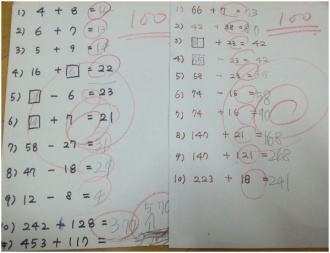 100
1) 4 + 8 = 12
2) 6 + 7 = 13
3) 5 + 9 = 14
4) 16 + 6 = 22
5) - 6 = 23
6) + 7 = 21
7) 58 - 27 = 31
8) 47 - 18 = 29
9) 12 - 8 = 4
10) 242 + 128 = 370
#) 453 + 117 = 570
100
1) 66 + 7 = 73
2) 42 + 38 = 80
3) + 33 = 42
4) - 23 = 42
5) 58 - 23 =
6) 74 - 16 = 58
7) 74 + 16 = 90
8) 147 + 21 = 168
9) 147 + 121 = 268
10) 223 + 18 = 241